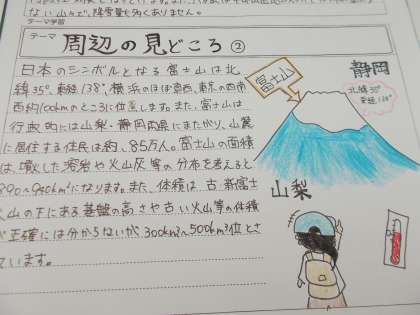 ない山々で、降雪量も多くありません。
テーマ学習
テーマ 周辺の見どころ②
日本のシンボルとなる富士山は北
緯35°、東経138°、横浜のほぼ真西、東京の西南
西約100kmのところに位置します。また、富士山は
行政的には山梨・静岡両県にまたがり、山麓
に居住する住民は約、85万人。富士山の面積
は、噴火した溶岩や火山灰等の分布を考えると
890〜960km²になります。また、体積は、古・新富士
火山の下にある基盤の高さや古い火山等の体積
が正確には分からないが、300km³〜500km³位とさ
ています。
富士山
静岡
北緯35°
東経138°
山梨